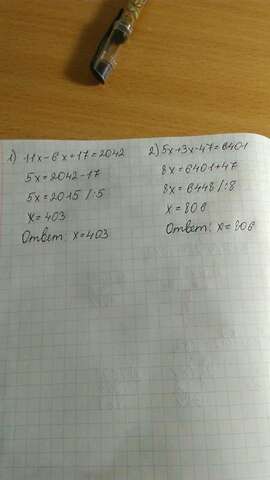 1) 11x-6x+17=2042
5x=2042-17
5x=2015 /:5
x=403
Ответ: x=403
2) 5x+3x-47=6401
8x=6401+47
8x=6448 /:8
x=806
Ответ: x=806